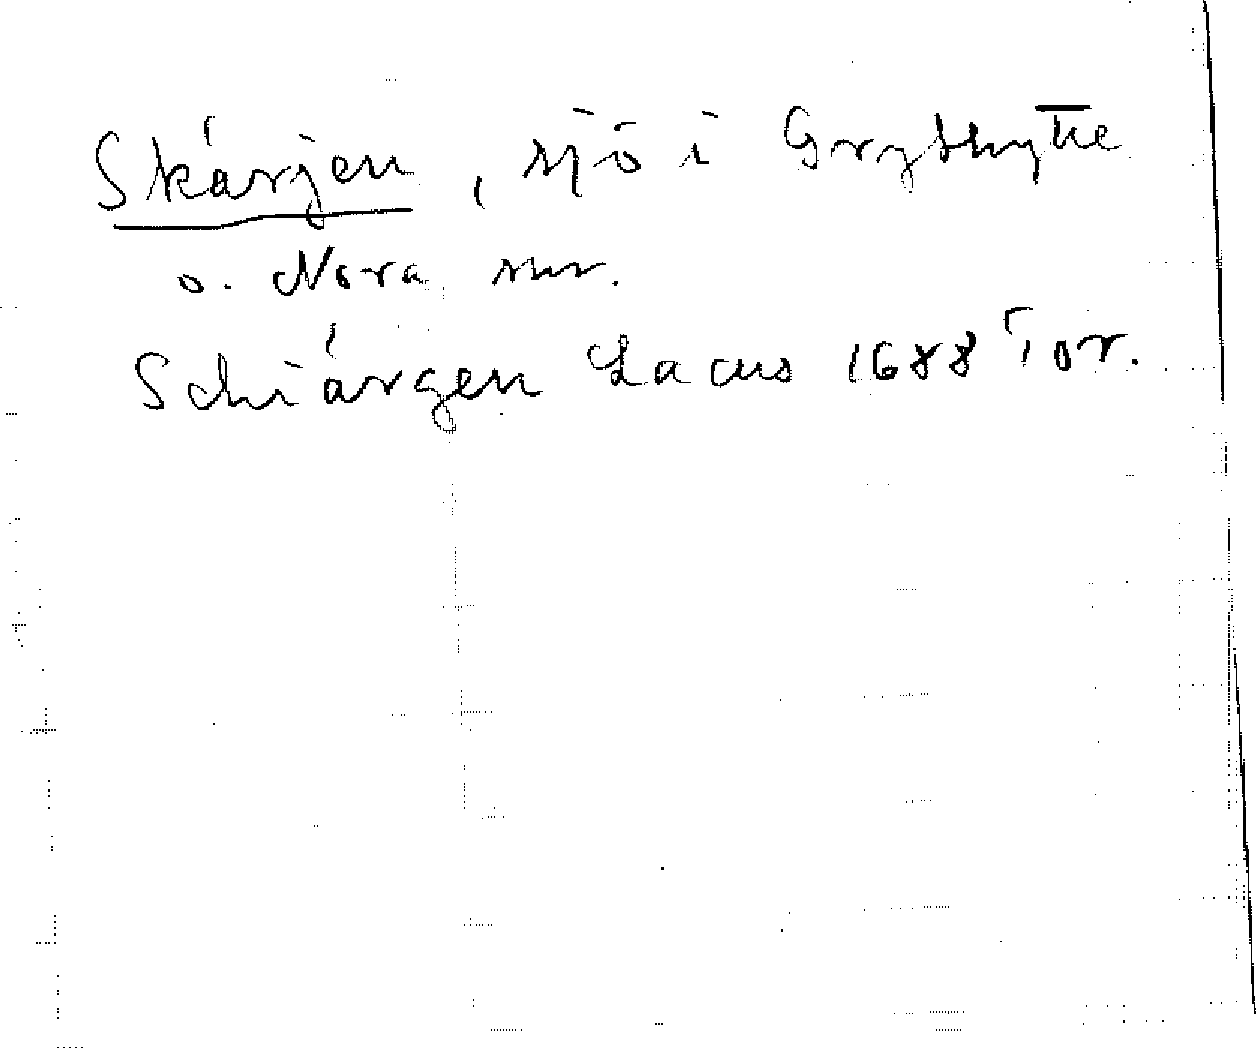 Skärjen, sjö i Grythytte
o. Nora snr.
Schiärgen Lacus 1688